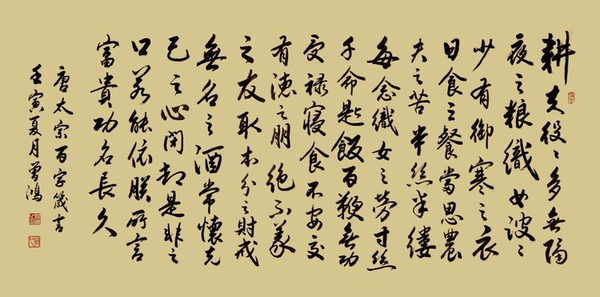 耕夫役〻多無隔
夜之粮織女波〻
少有御寒之衣
日食之餐當思農
夫之苦半絲半縷
每念織女之勞寸絲
千命匙飯百鞭無功
受禄寢食不安交
有德之朋絕不義
之友取本分之財戒
無名之酒常懷克
己之心閉却是非之
口若能依朕所言
富貴功名長久
唐太宗百字箴言
壬寅夏月曾鴻